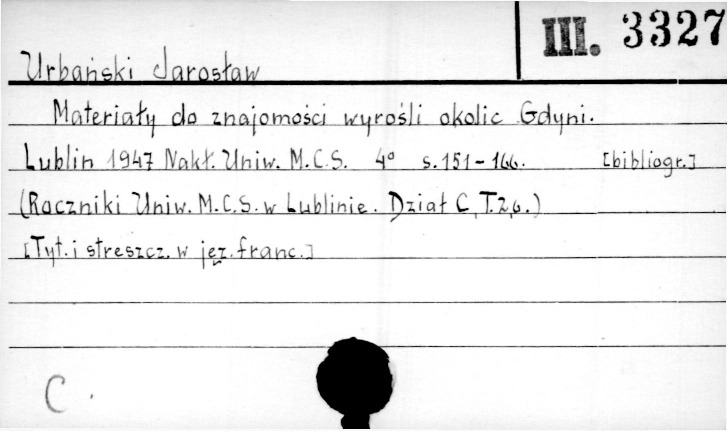 III. 3327
Urbański Jarosław
Materiały do znajomości wyrośli okolic Gdyni.
Lublin 1947 Nakł. Uniw. M.C.S. 4° s. 151-166. [bibliogr.]
(Roczniki Uniw. M.C.S. w Lublinie. Dział C, T. 2,6.)
[Tyt. i streszcz. w jęz. franc.]
C.